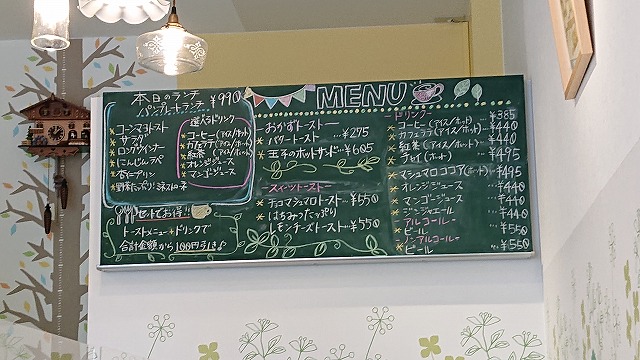 本日のランチ
パンプレートランチ ¥990
コーンマヨトースト
サラダ
ロングウインナー
にんじんラペ
杏仁プリン
野菜たっぷり
選べるドリンク
コーヒー(アイス/ホット)
カフェラテ(アイス/ホット)
紅茶(アイス/ホット)
オレンジジュース
マンゴージュース
セットでお得!!
トーストメニュー+ドリンクで
合計金額から100円引き♪
MENU
おかずトースト
バタートースト … ¥275
玉子のホットサンド … ¥605
スイーツトースト
チョコマシュマロトースト … ¥550
はちみつたっぷり
レモンチーズトースト … ¥550
ドリンク
コーヒー(アイス/ホット) … ¥385
カフェラテ(アイス/ホット) … ¥440
紅茶(アイス/ホット) … ¥440
チャイ(ホット) … ¥495
マシュマロココア(ホット) … ¥495
オレンジジュース … ¥440
マンゴージュース … ¥440
ジンジャエール … ¥440
アルコール
ビール … ¥550
ノンアルコール
ビール … ¥550